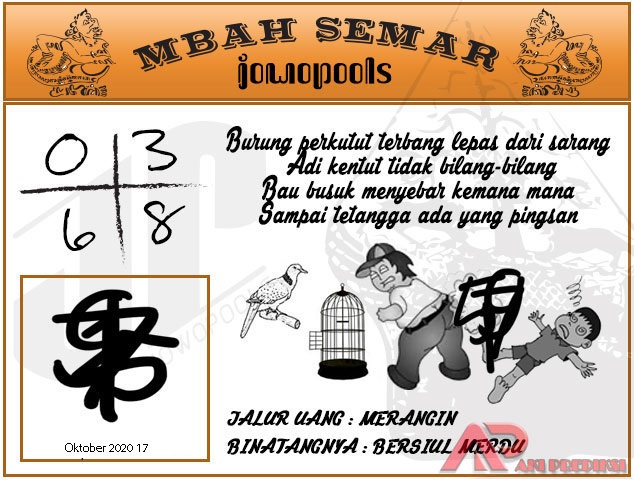 MBAH SEMAR
jowopools
0 3
6 8
Burung perkutut terbang lepas dari sarang
Adi kentut tidak bilang-bilang
Bau busuk menyebar kemana mana
Sampai tetangga ada yang pingsan
Oktober 2020 17
JALUR UANG : MERANGIN
BINATANGNYA : BERSIUL MERDU
AP AKI PREDIKSI